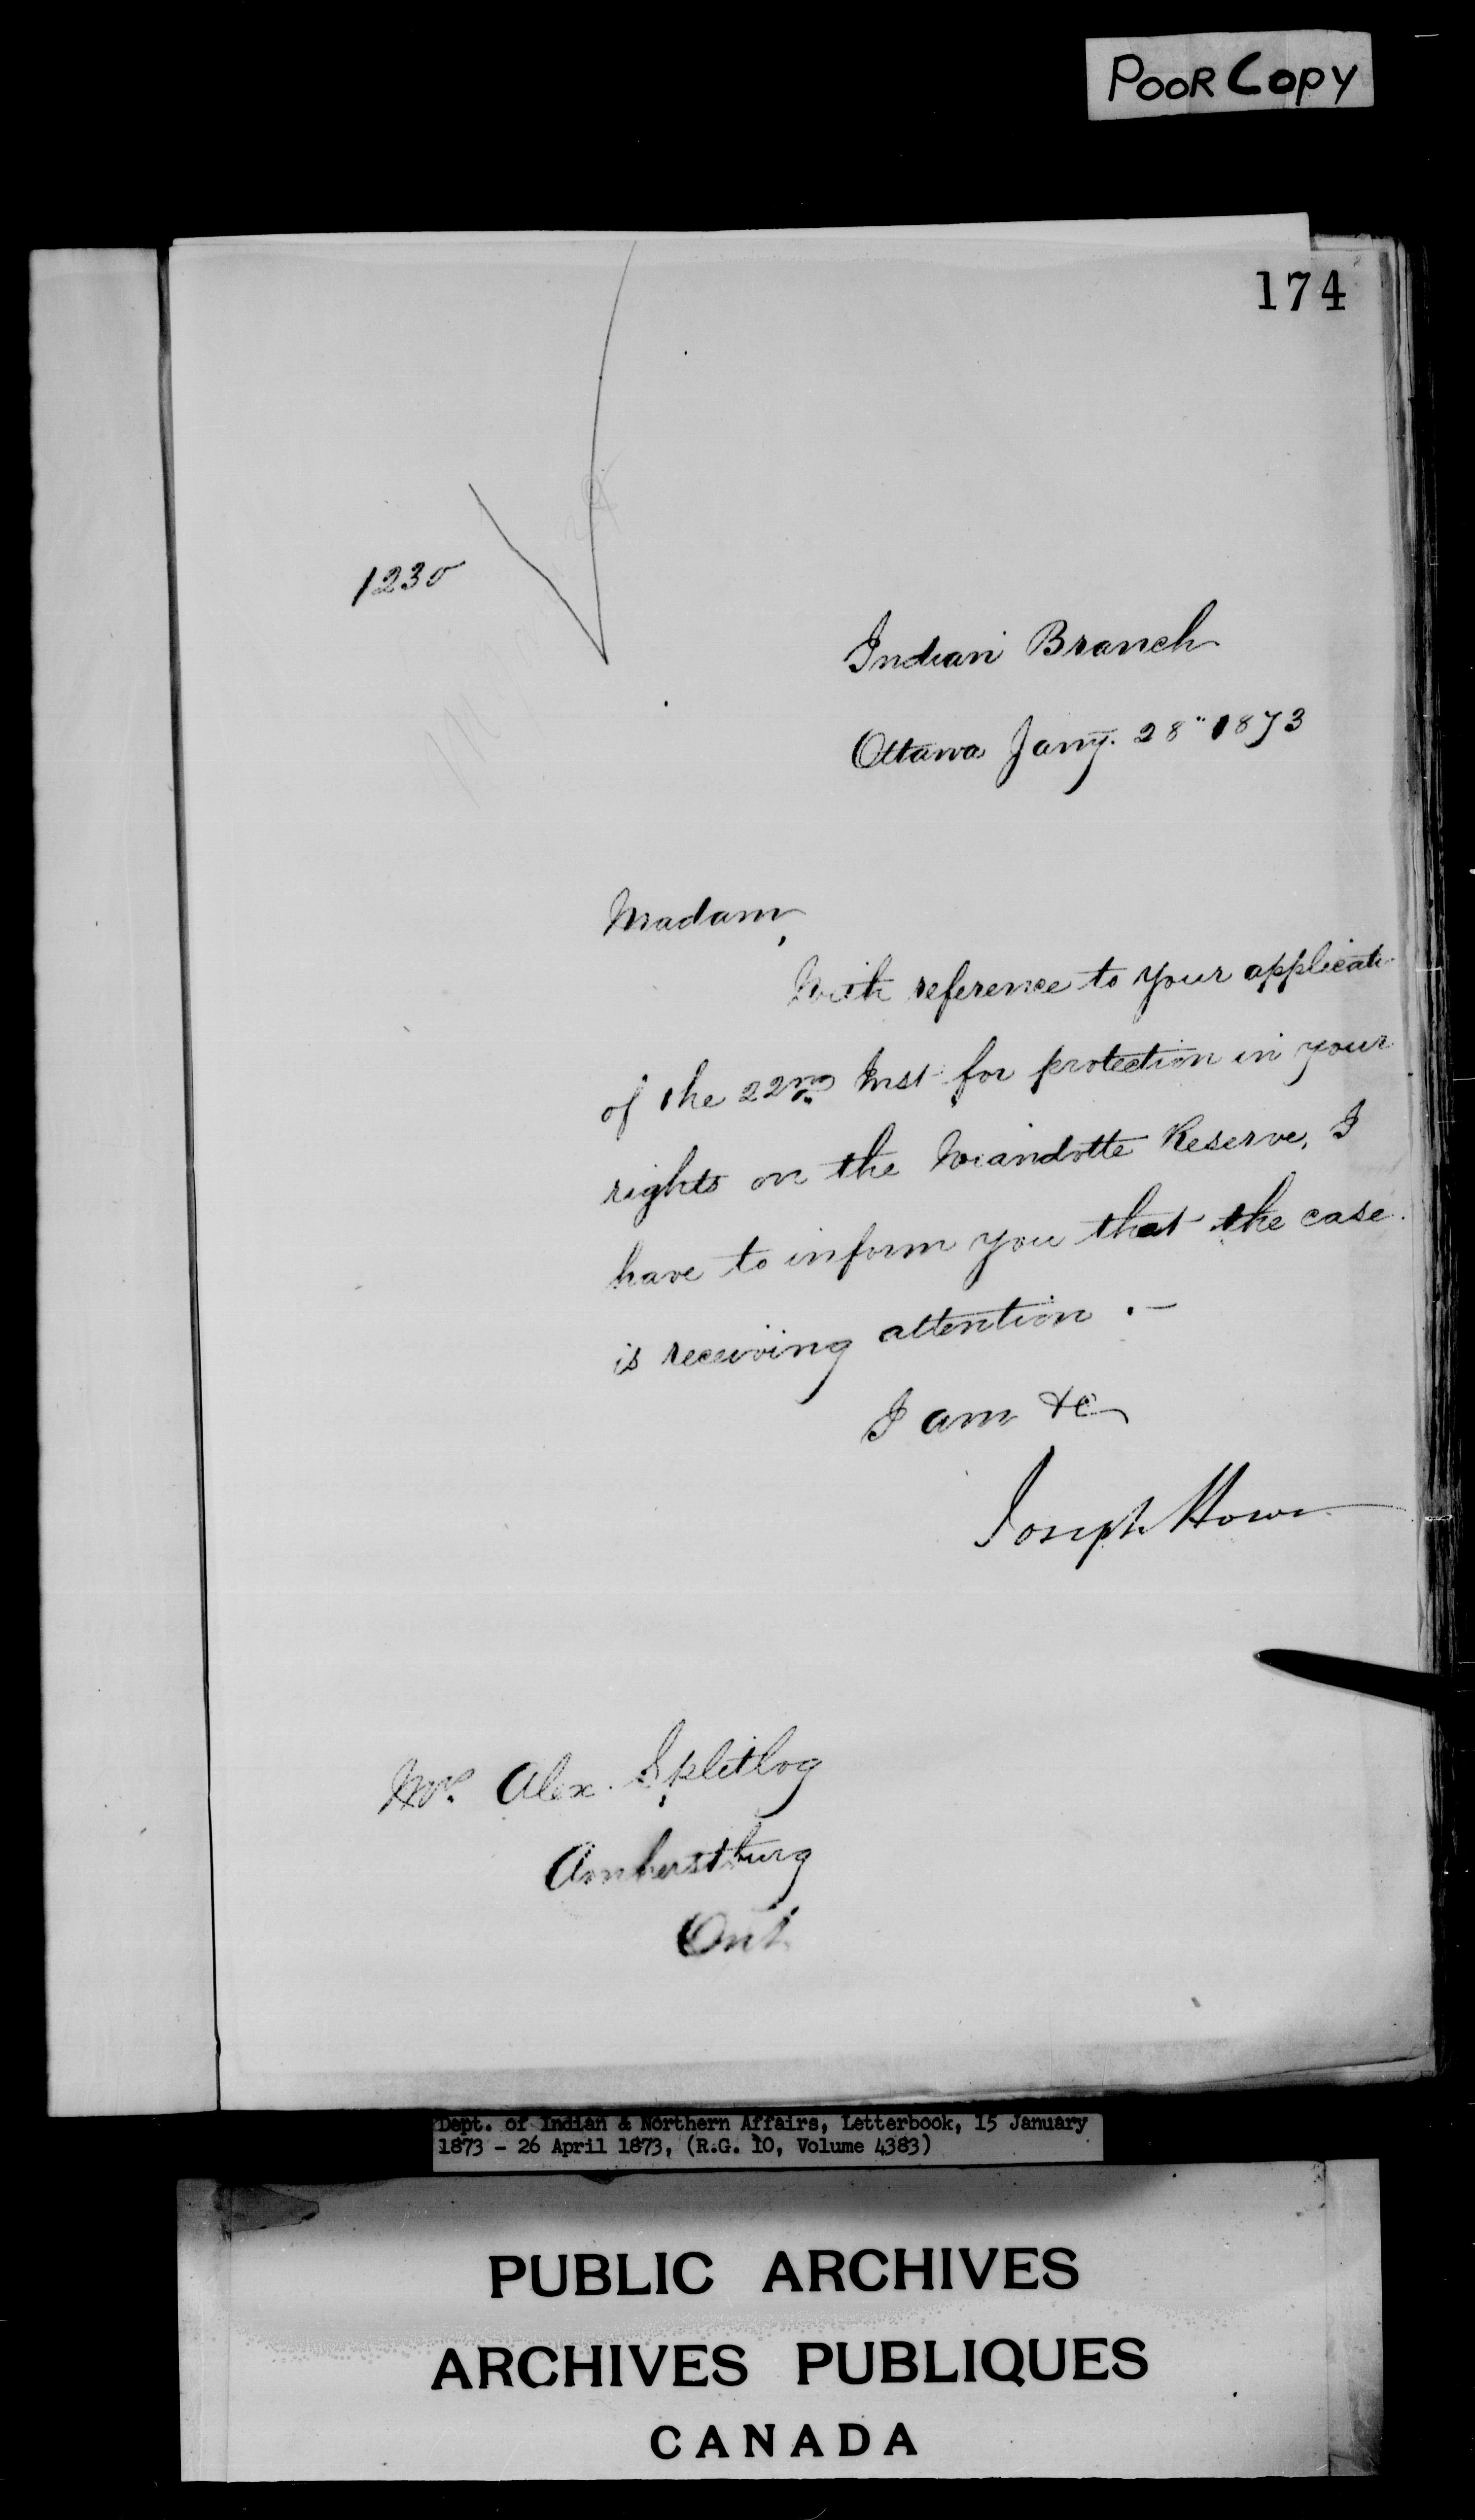 POOR COPY
174
1230
Indian Branch
Ottawa Jany. 28" 1873
Madam,
With reference to your applicati-
of the 22nd Inst for protection in your
rights on the Wiandotte Reserve, I
have to inform you that the case
is receiving attention . –
I am &c
Joseph Howe
Mrs. Alex. Splitlog
Amherstburg
Ont.
Dept. of Indian & Northern Affairs, Letterbook, 15 January
1873 - 26 April 1873, (R.G. 10, Volume 4383)
PUBLIC ARCHIVES
ARCHIVES PUBLIQUES
CANADA